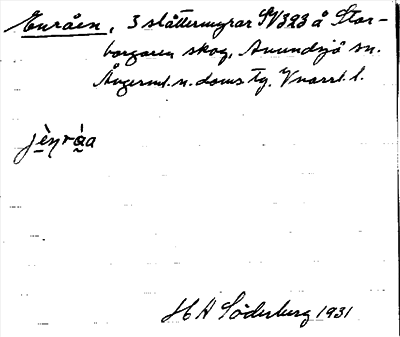 Enråen, 3 slåttermyrar SV323 å Stor-
borgaren skog, Anundsjö sn.
Ångerml. n. doms tg. Vnorrl. l.
jènràa
H A Söderberg 1931